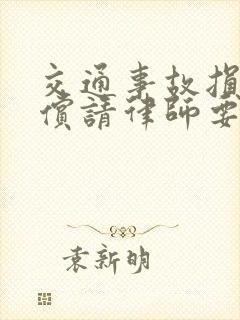 交通事故損
償請律師要
袁新明